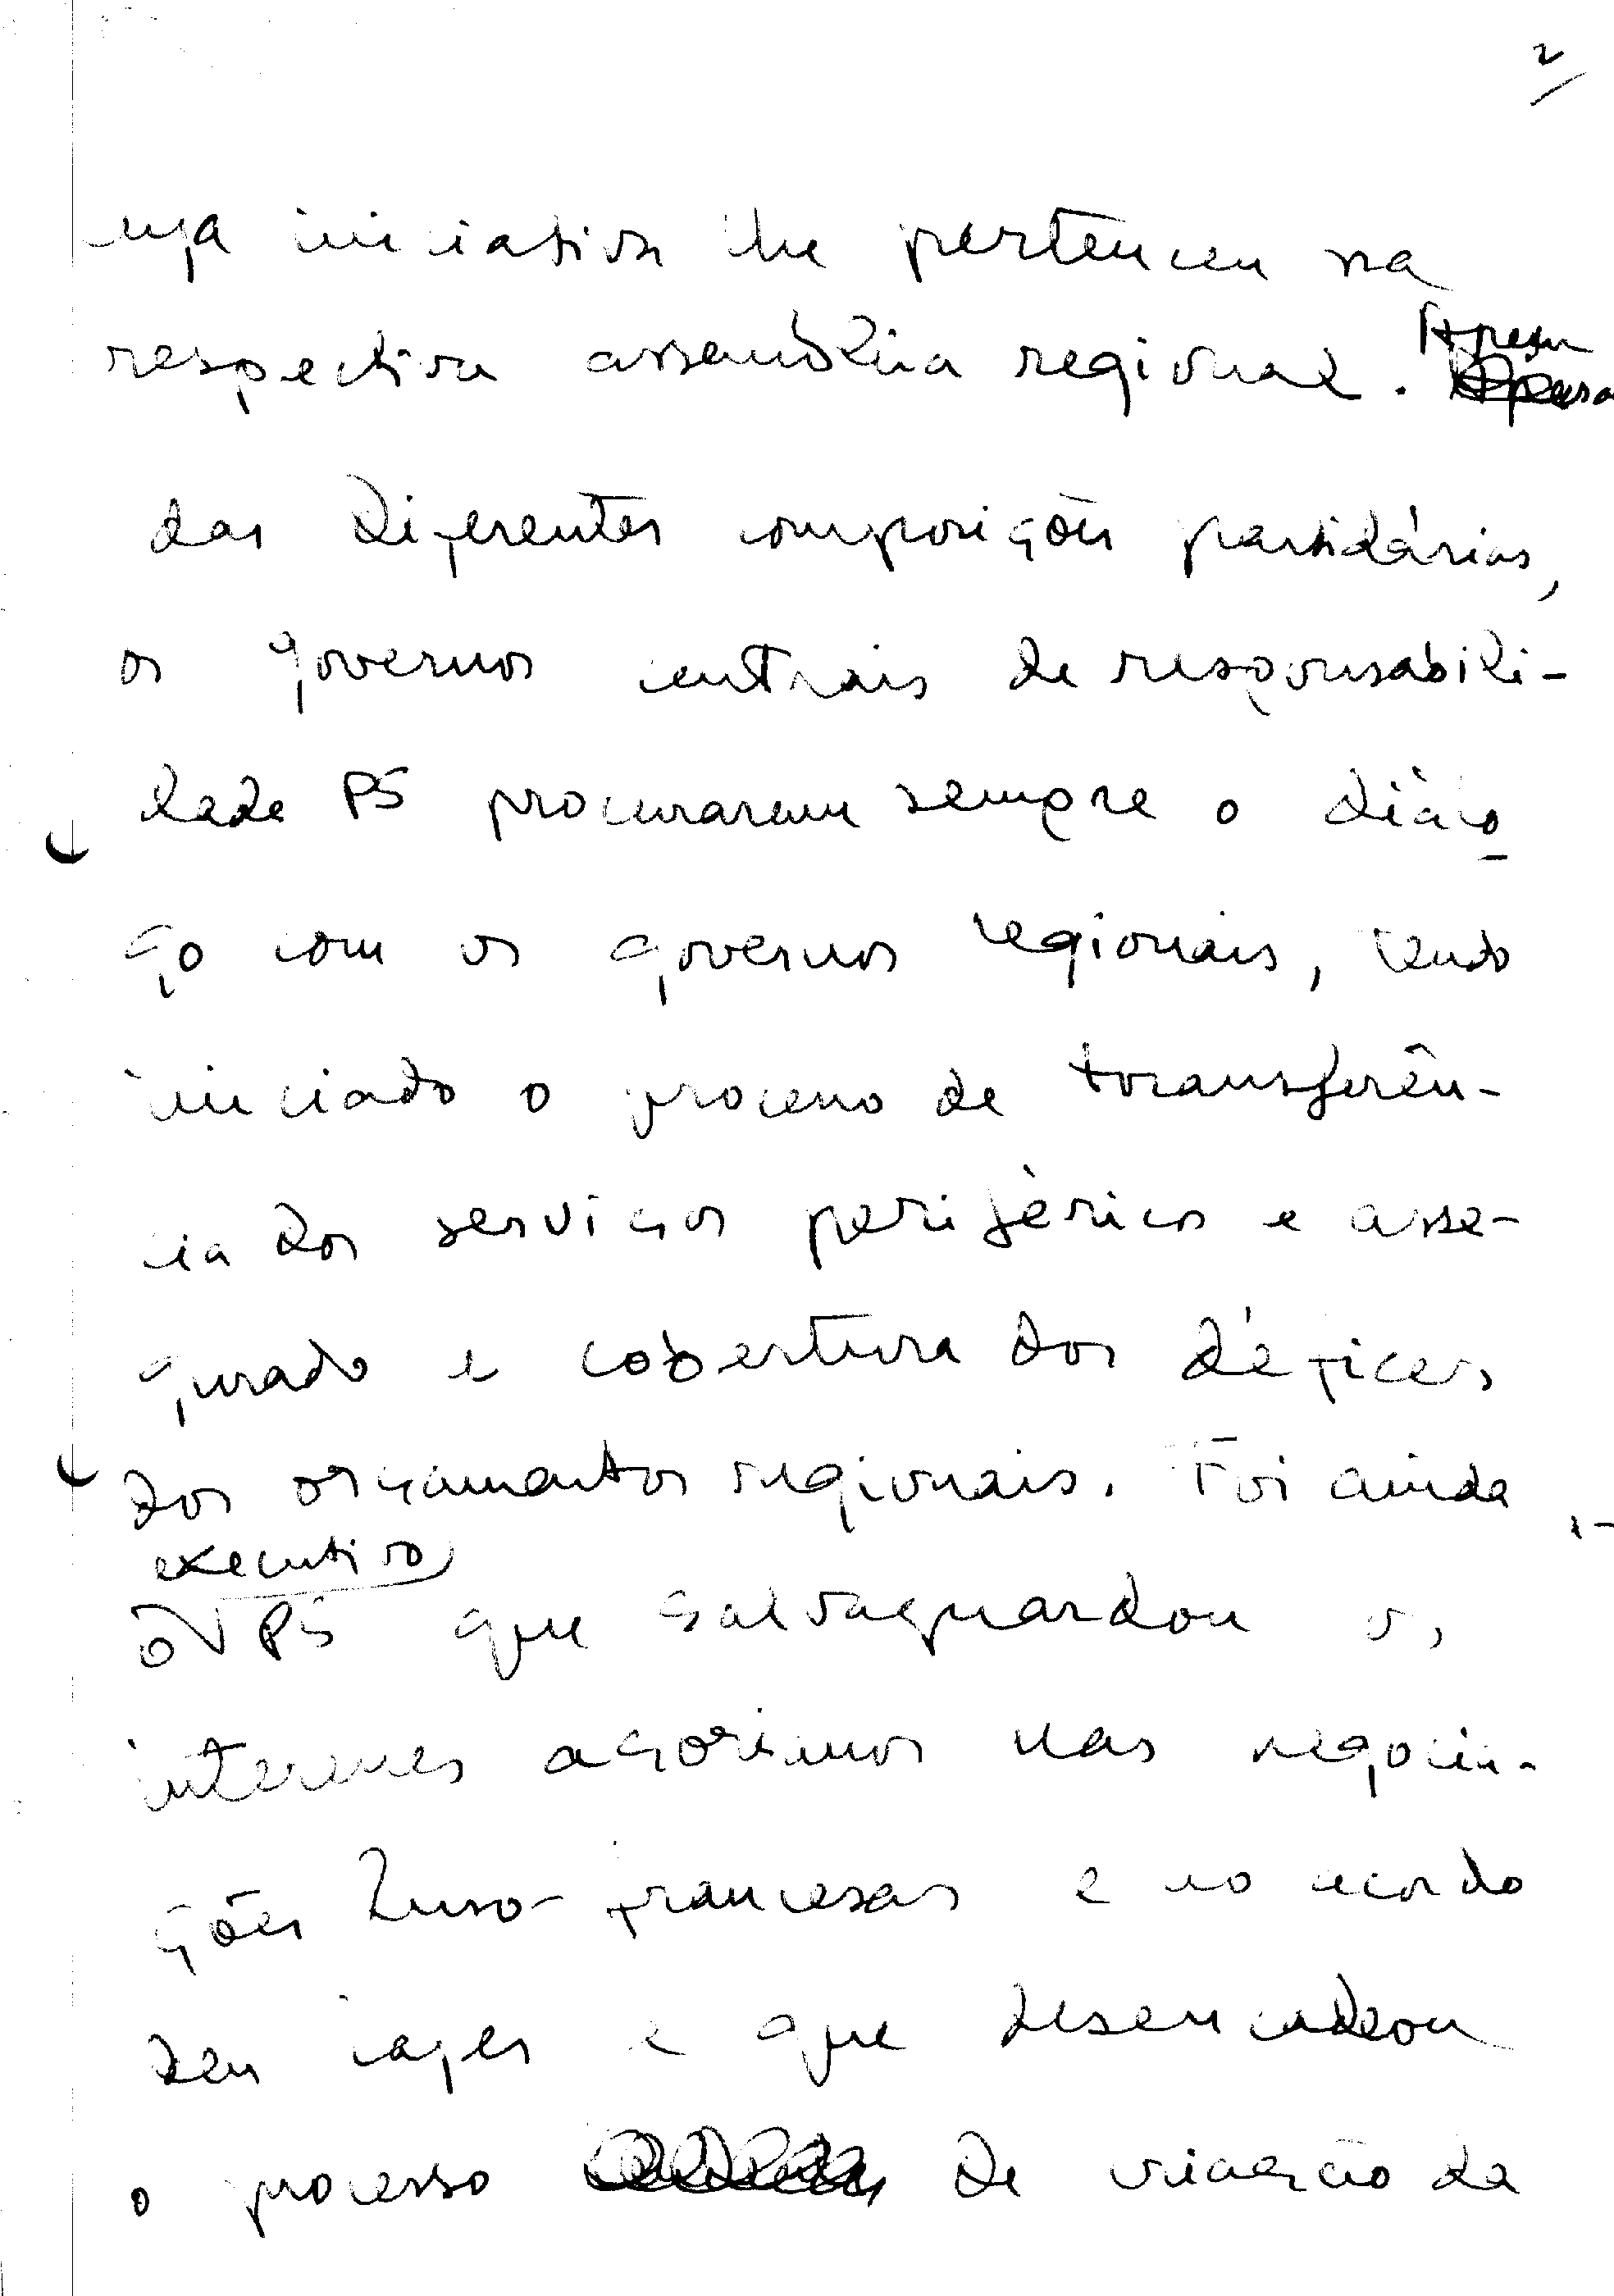 2
cuja iniciativa lhe pertenceu na
respectiva assembleia regional. Apesar
das diferentes composições partidárias,
os governos centrais de responsabili-
dade PS procuraram sempre o diálo
go com os governos regionais, tendo
iniciado o processo de transferên-
cia dos serviços periféricos e asse-
gurado a cobertura dos défices
dos orçamentos regionais. Foi ainda
executivo
o PS que salvaguardou os
interesses açorianos nas negocia-
ções Luso-francesas e no acordo
das Lajes e que desencadeou
o processo de criação da